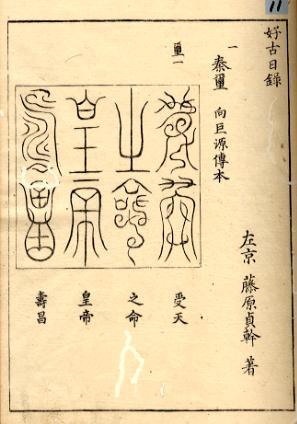 好古日錄
左京 藤原貞幹 著
一 秦璽 向巨源傳本
璽一
受天
之命
皇帝
壽昌
11